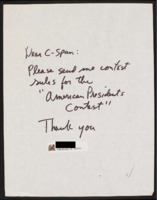 Dear C-Span:
Please send me contest
rules for the
"American Presidents
Contest"
Thank you